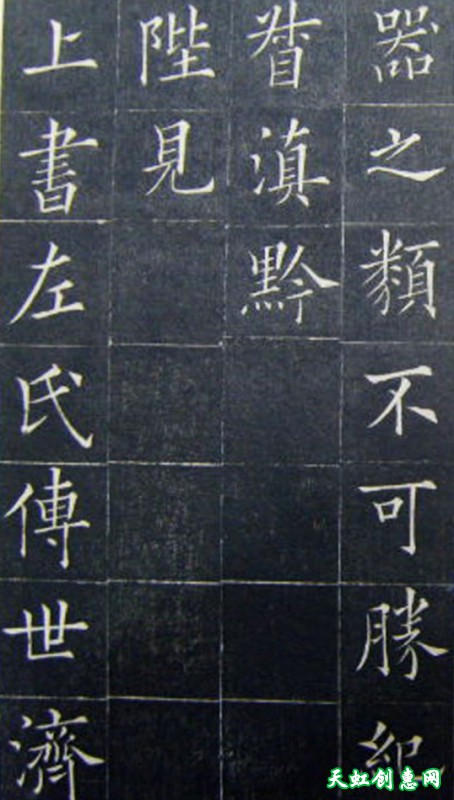 器之類不可勝紀
督滇黔
陛見
上書左氏傳世濟
天虹创惠网